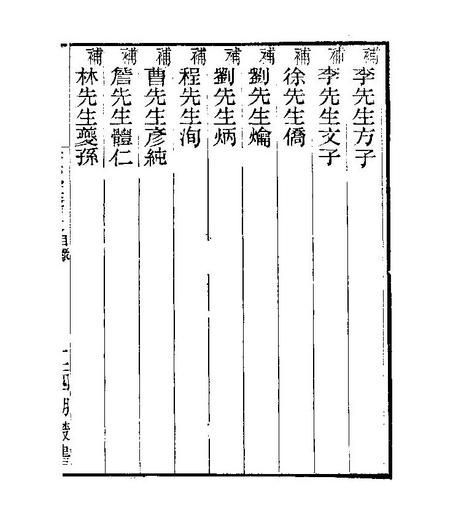 補李先生方子
補李先生文子
補徐先生僑
補劉先生爚
補劉先生炳
補程先生洵
補曹先生彥純
補詹先生體仁
補林先生夔孫
目錄
四明叢書